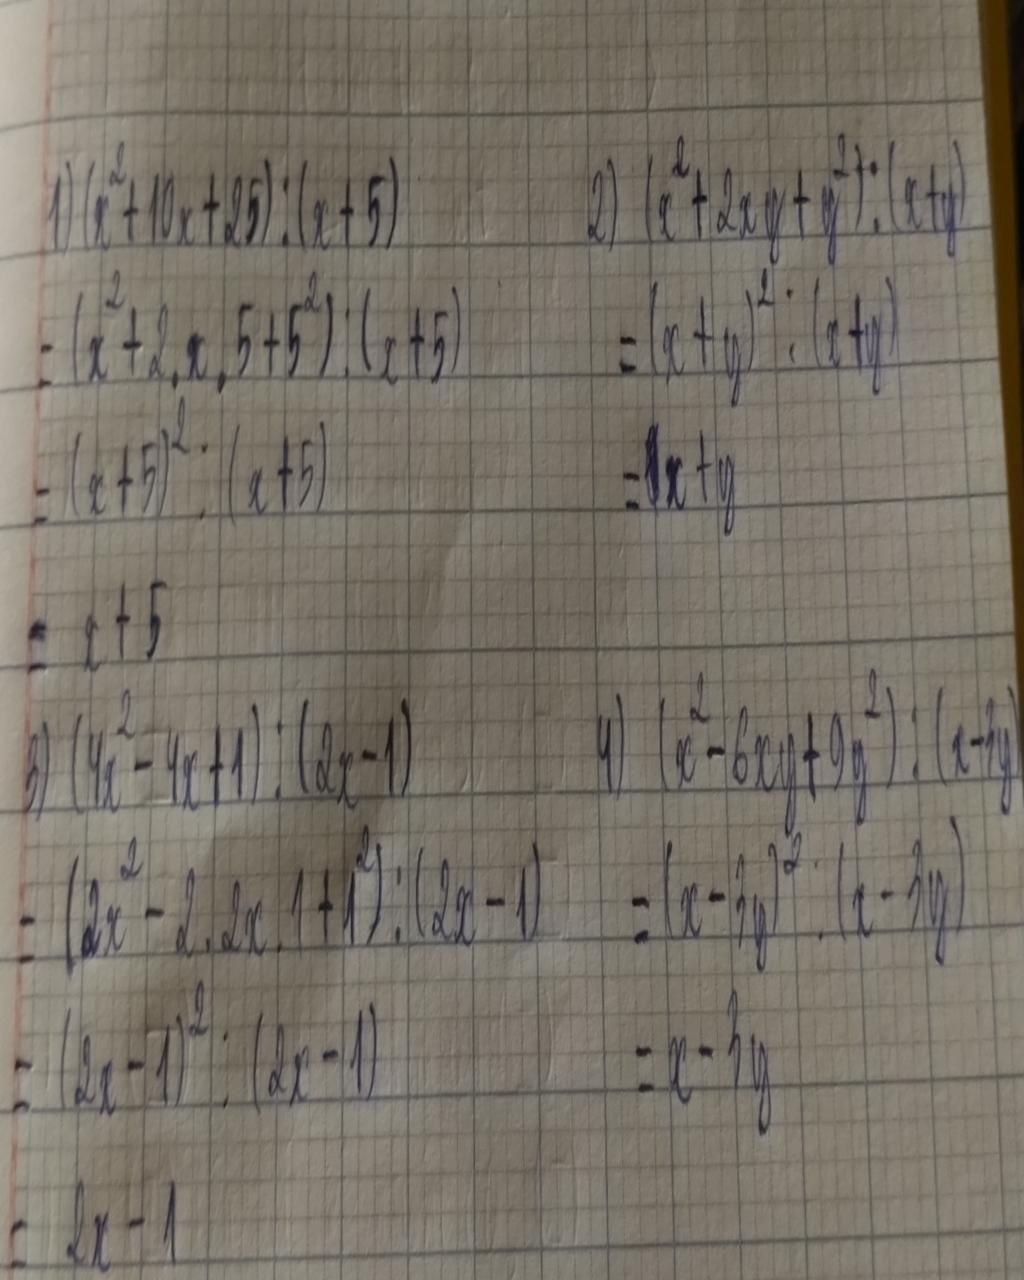 1) (x²+10x+25):(x+5)
= (x²+2.x.5+5²):(x+5)
= (x+5)² : (x+5)
= x+5
2) (x²+2xy+y²):(x+y)
= (x+y)² : (x+y)
= x+y
3) (4x²-4x+1):(2x-1)
= (2x²-2.2x.1+1²):(2x-1)
= (2x-1)² : (2x-1)
= 2x-1
4) (x²-6xy+9y²):(x-3y)
= (x-3y)² : (x-3y)
= x-3y